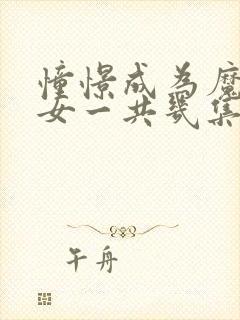 憧憬成为魔
女一共几集
午舟